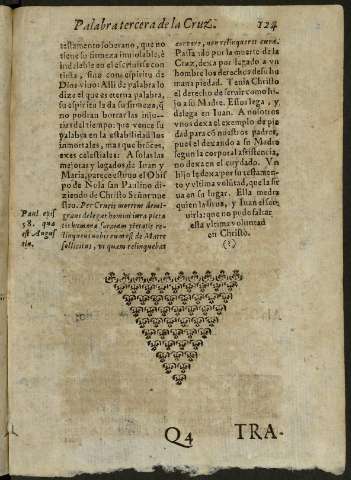 Palabra tercera de la Cruz.
124
testamento soberano, que no
tiene su firmeza inmolable, è
indeleble en el escriuirse con
tinta, sino con espiritu de
Dios viuo: Alli de palabra lo
dize el que es eterna palabra,
su espiritu la da su firmeza, q̃
no podran borrar las injurias
del tiempo: que vence su
palabra en la estabilidad los
inmortales, mas que bronces,
exes celestiales: A solas las
mejoras y legados de Iuan y
Maria, parece estuuo el Obispo
de Nola san Paulino diziendo
de Christo Señor nuestro.
Per Crucis mortem demigrans
de legat homini iura pietatis
humana
relinquens nobis
de Matre
sollicitus, vt quam relinquebat
Paul epis
58. qua
est Augus
tin.
corpore, non relinqueret cura.
Passando por la muerte de la
Cruz, dexa por legado a vn
hombre los derechos de su humana
piedad. Tenia Christo
el derecho de seruir como hijo
a su Madre. Essos lega, y
delega en Iuan. A nosotros
nos dexa el exemplo de piedad
para cõ nuestros padres,
pues el dexando a su Madre
segun la corporal assistencia,
no dexa en el cuydado. Vn
hijo le dexa por su testamento
y vltima volũtad, que la sirua
en su lugar. Ella medre
quien la
y Iuan el seruirla:
que no pudo faltar
esta vltima voluntad
en Christo.
(?)
Q4
TRA-